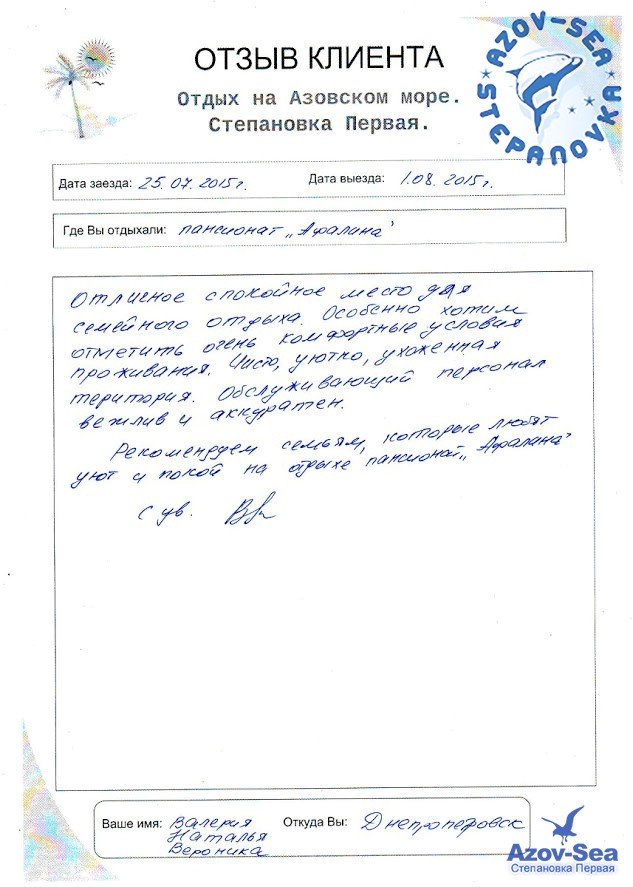 ОТЗЫВ КЛИЕНТА
AZOV-SEA
STEPANOVKA
Отдых на Азовском море.
Степановка Первая.
Дата заезда: 25.07.2015г. Дата выезда: 1.08.2015г.
Где Вы отдыхали: пансионат „Афалина"
Отличное спокойное место для
семейного отдыха. Особенно хотим
отметить очень комфортные условия
проживания. Чисто, уютно, ухоженная
територия. Обслуживающий персонал
вежлив и аккуратен.
Рекомендуем семьям, которые любят
уют и покой на отдыхе пансионат „Афалина"
С ув.
Ваше имя: Валерия Откуда Вы: Днепропетровск
Наталья
Вероника
Azov-Sea
Степановка Первая